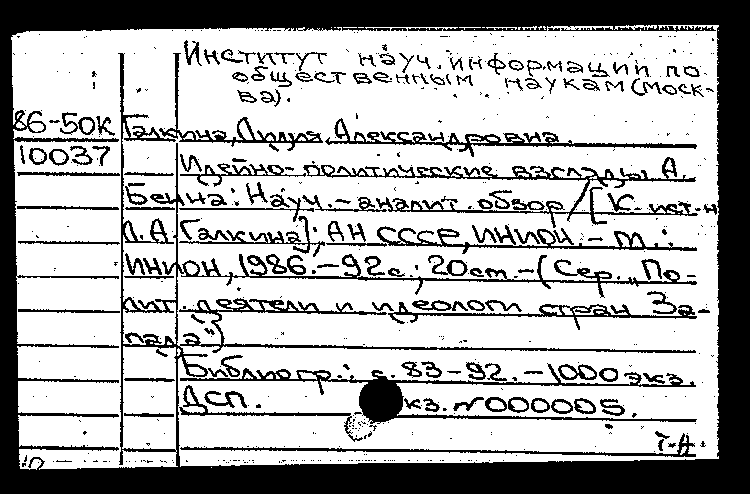 Институт науч. информации по
общественным наукам (Моск-
ва).
86-50К Галкина, Лидия Александровна.
10037 Идейно-политические взгляды А.
Бенна: Науч.-аналит. обзор / [К. ист. н.
Л. А. Галкина]; АН СССР, ИНИОН. - М.:
ИНИОН, 1986. - 92с.; 20см. - (Сер. „По-
лит. деятели и идеологи стран За-
пада")
Библиогр.: с. 83-92. - 1000 экз.
ДСП. кз. №000005.